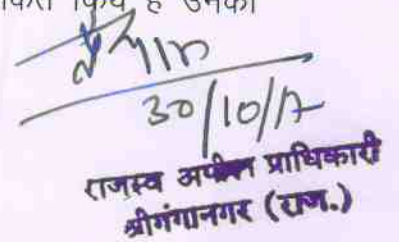 किये है उनका
30/10/17
राजस्व अपील प्राधिकारी
श्रीगंगानगर (राज.)